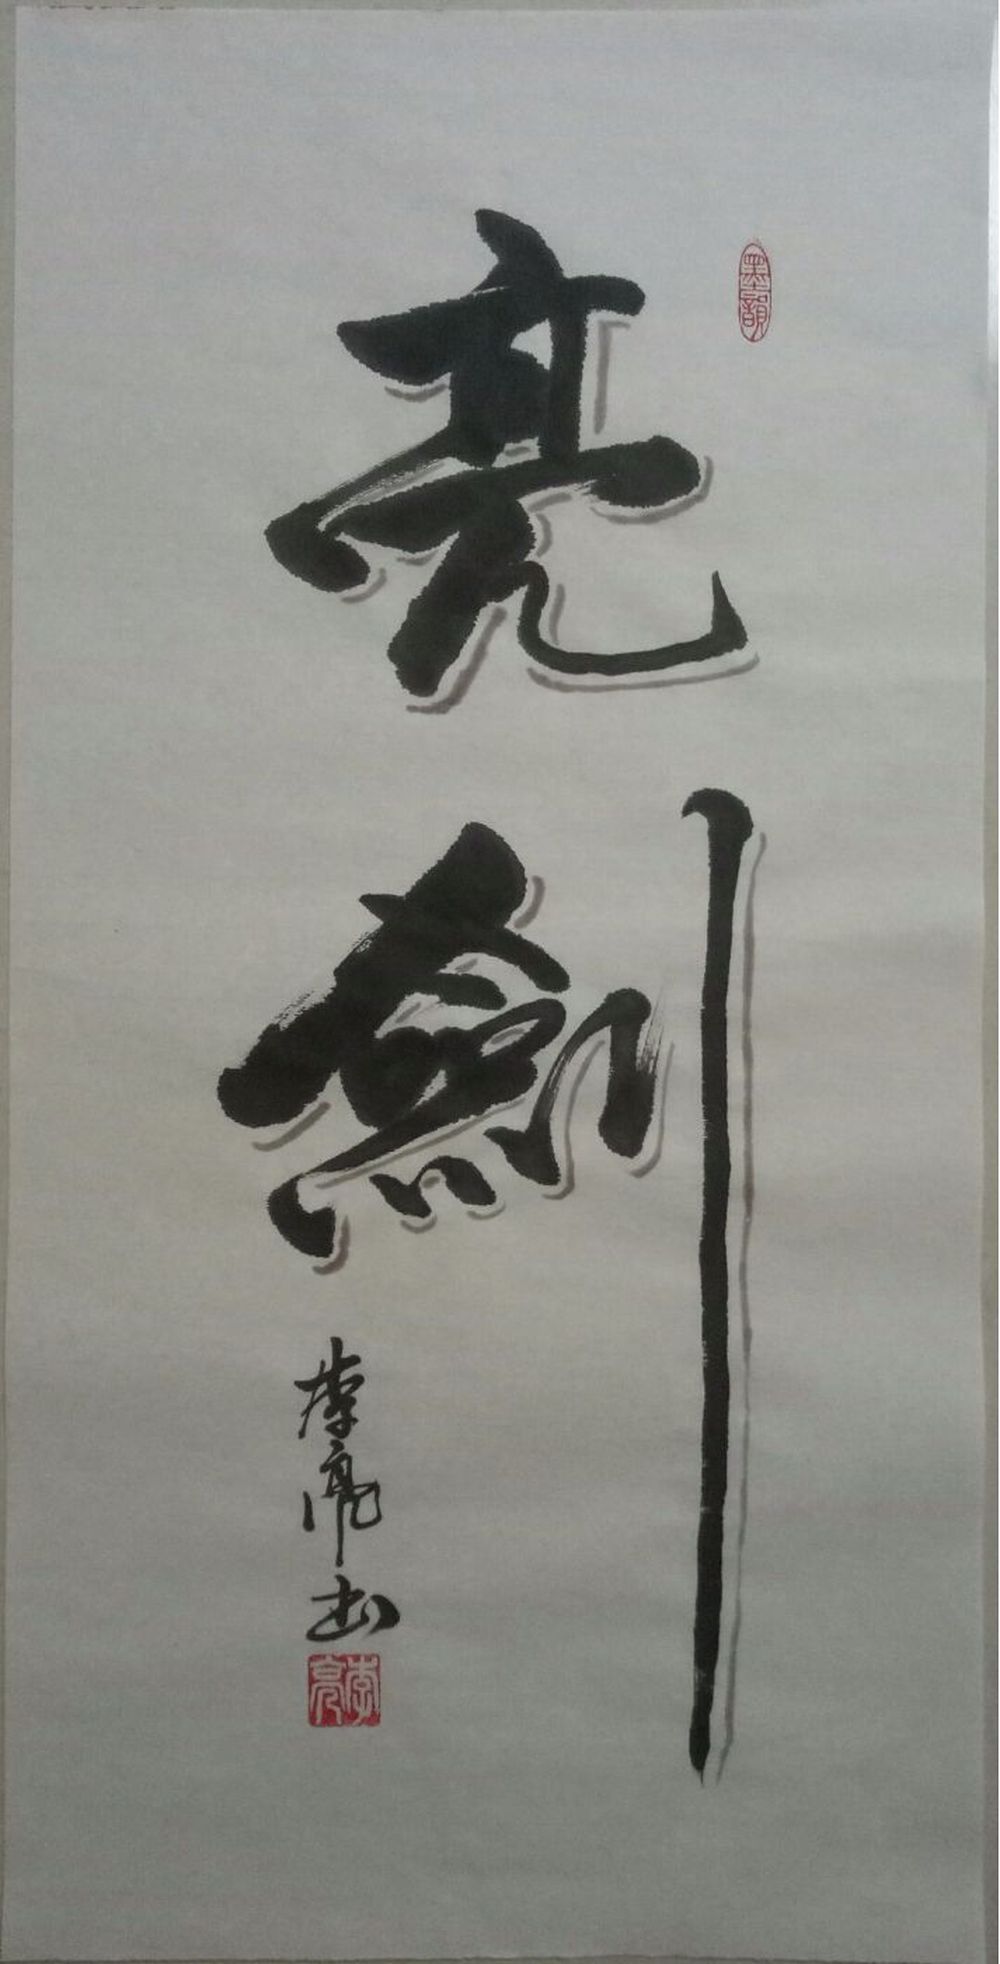 亮劍
墨韻
李亮书
李亮